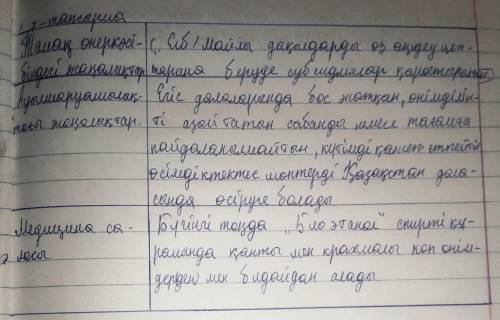 2-тапсырма
Тамақ өнеркәсі-
біндегі жаңалықтар
С. Сб/майлы дақылдарды өз өңдеу цех-
тарына беруде субсидиялар қарастырылған
Ауылшаруашылық-
тағы жаңалықтар.
Егіс далаларында бос жатқан, өнімділік-
ті азайтатын сабанды, және тағамға
пайдаланылмайтын, күтімді қажет етпейтін
өсімдіктектес шөптерді Қазақстан дала-
сында өсіруге болады
Медицина са-
ласы
Бүгінгі таңда "Биоэтанол" спирті құ-
рамында қанты мен крахмалы көп өнім-
дерден мен бидайдан алады.